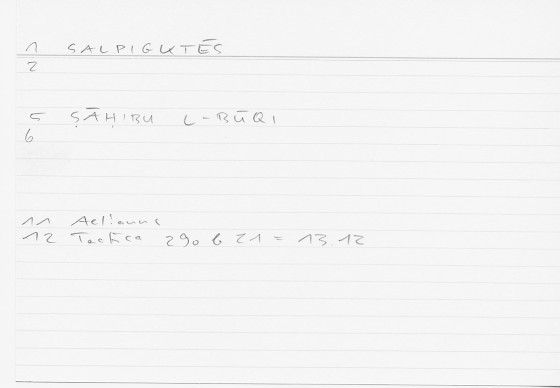 1 SALPIGKTĒS
2
5 ṢĀḤIBU L-BŪQI
6
11 Aelianus
12 Tactica 290 b 21 = 13.12